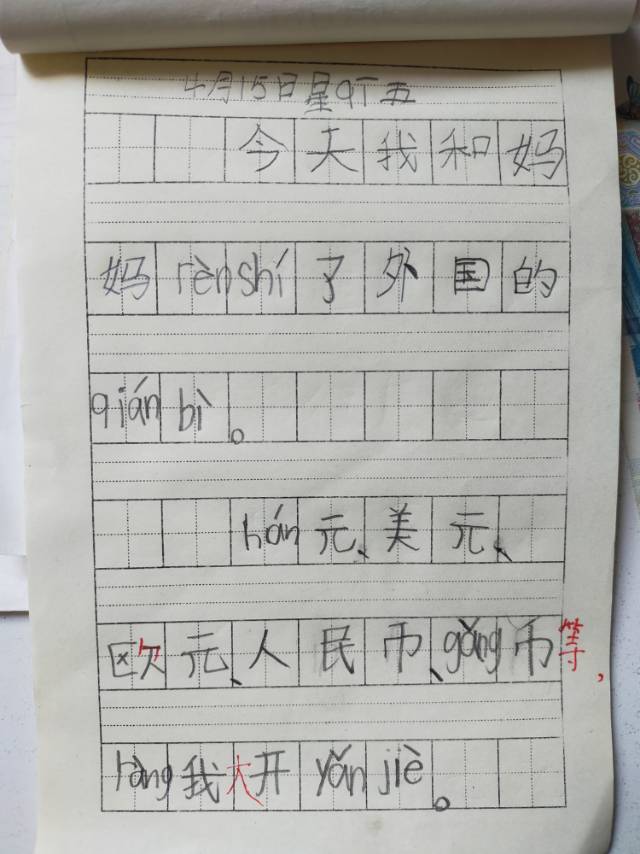 4月15日星期五
今天我和妈
妈rènshí了外国的
qiánbì。
hán元、美元、
欧元、人民币、gǎng币等,
ràng我大开yǎnjiè。